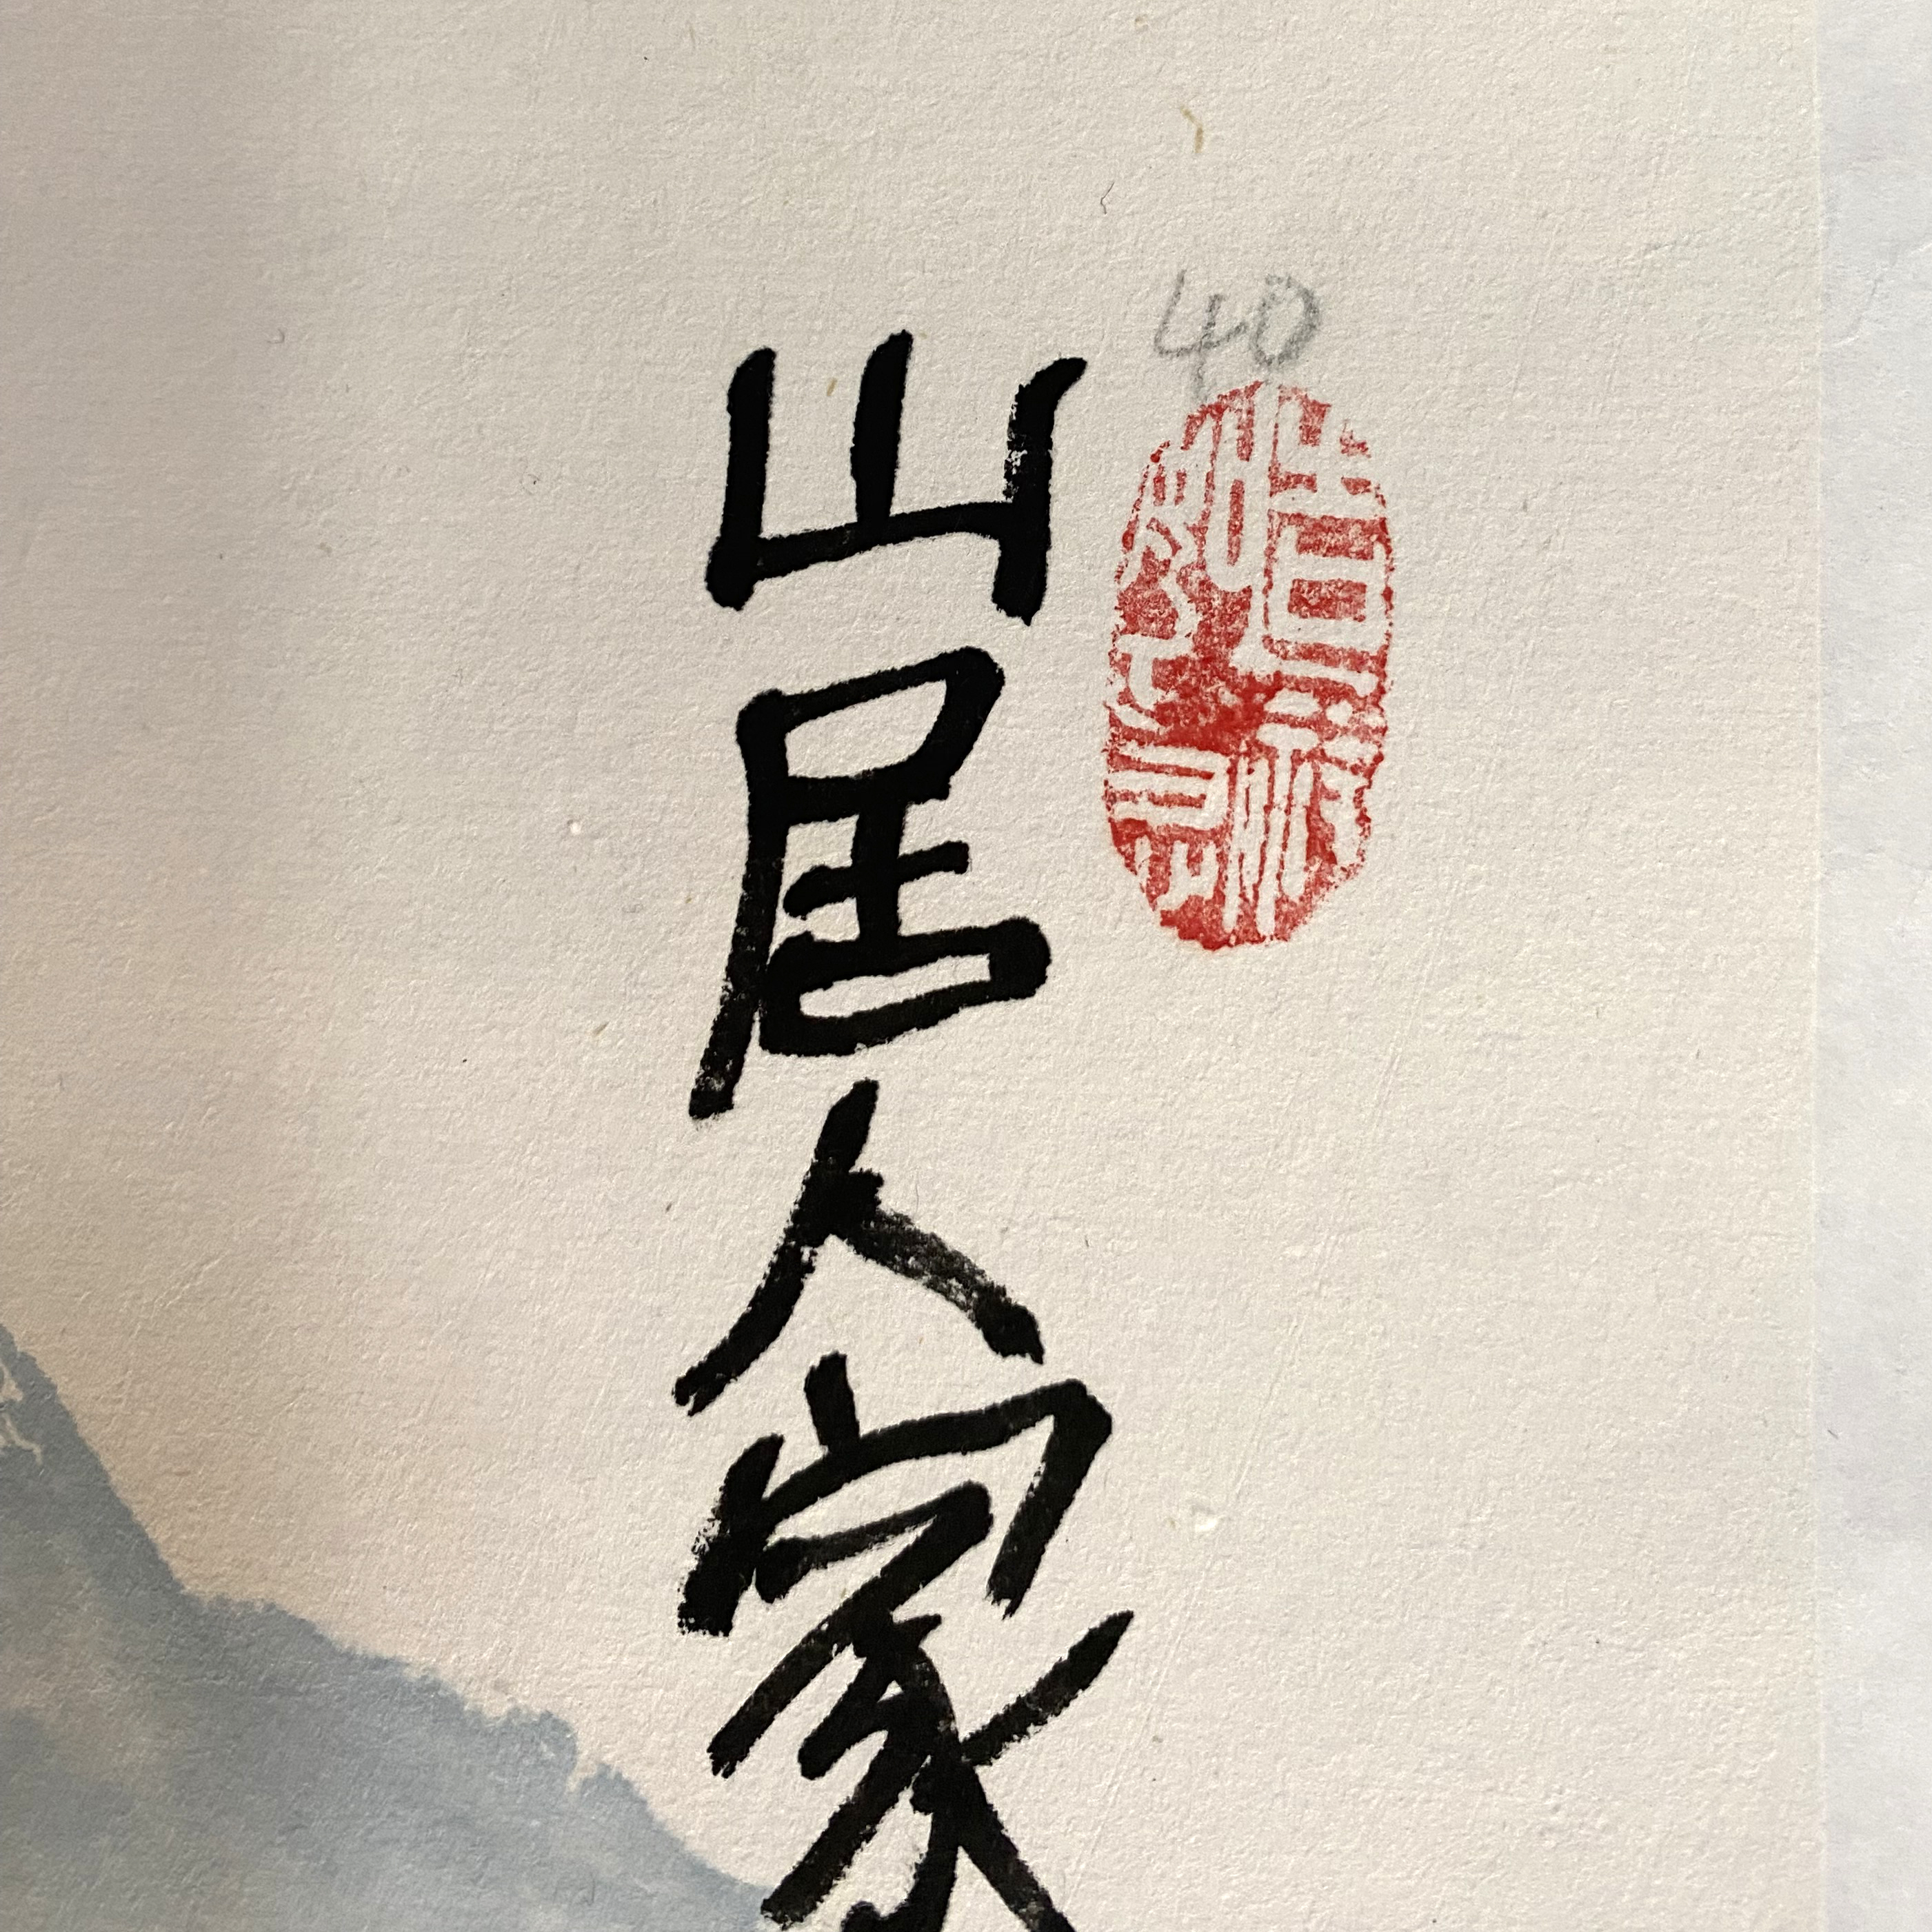 40
山居人家